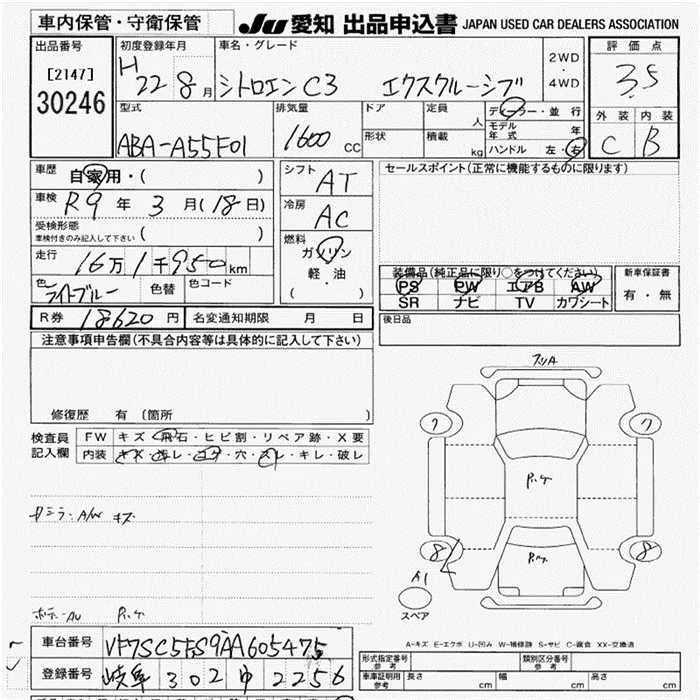 車内保管・守衛保管
JU 愛知 出品申込書 JAPAN USED CAR DEALERS ASSOCIATION
出品番号
[2147]
30246
初度登録年月
H 22 8月
車名・グレード
シトロエン C3 エクスクルーシブ
2WD
・
4WD
評価点
3.5
外装 内装
C B
型式
ABA-A55F01
排気量
1600 CC
ドア
形状
定員 人
積載 kg
ディーラー・並行
モデル年式 年
ハンドル 左・右
車歴 自家用・( )
車検 R9年 3月(18日)
受検形態
車検付きのみ記入して下さい ( )
走行 16万1千950km
色 ライトブルー 色替 色コード
シフト AT
冷房 AC
燃料
ガソリン
軽油
( ・ )
R券 18620円 名変通知期限 月 日
セールスポイント(正常に機能するものに限ります)
装備品(純正品に限り○をつけてください)
PS PW エアB AW
SR ナビ TV カワシート
新車保証書
有・無
後日品
注意事項申告欄(不具合内容等は具体的に記入して下さい)
修復歴 有 〔箇所 〕
検査員
記入欄
FW キズ・飛石・ヒビ割・リペア跡・X要
内装 キズ・汚レ・コゲ・穴・スレ・キレ・破レ
A/W キズ
7 7
8 8
A1
スペア
A-キズ E-エクボ U-凹み W-補修跡 S-サビ C-腐食 XX-交換済
車台番号 VF7SC5FS9AA605475
登録番号 岐阜 302 ゆ 2256
形式指定番号
参考
類別区分番号
参考
車庫証明用
参考
長さ cm 幅 cm 高さ cm